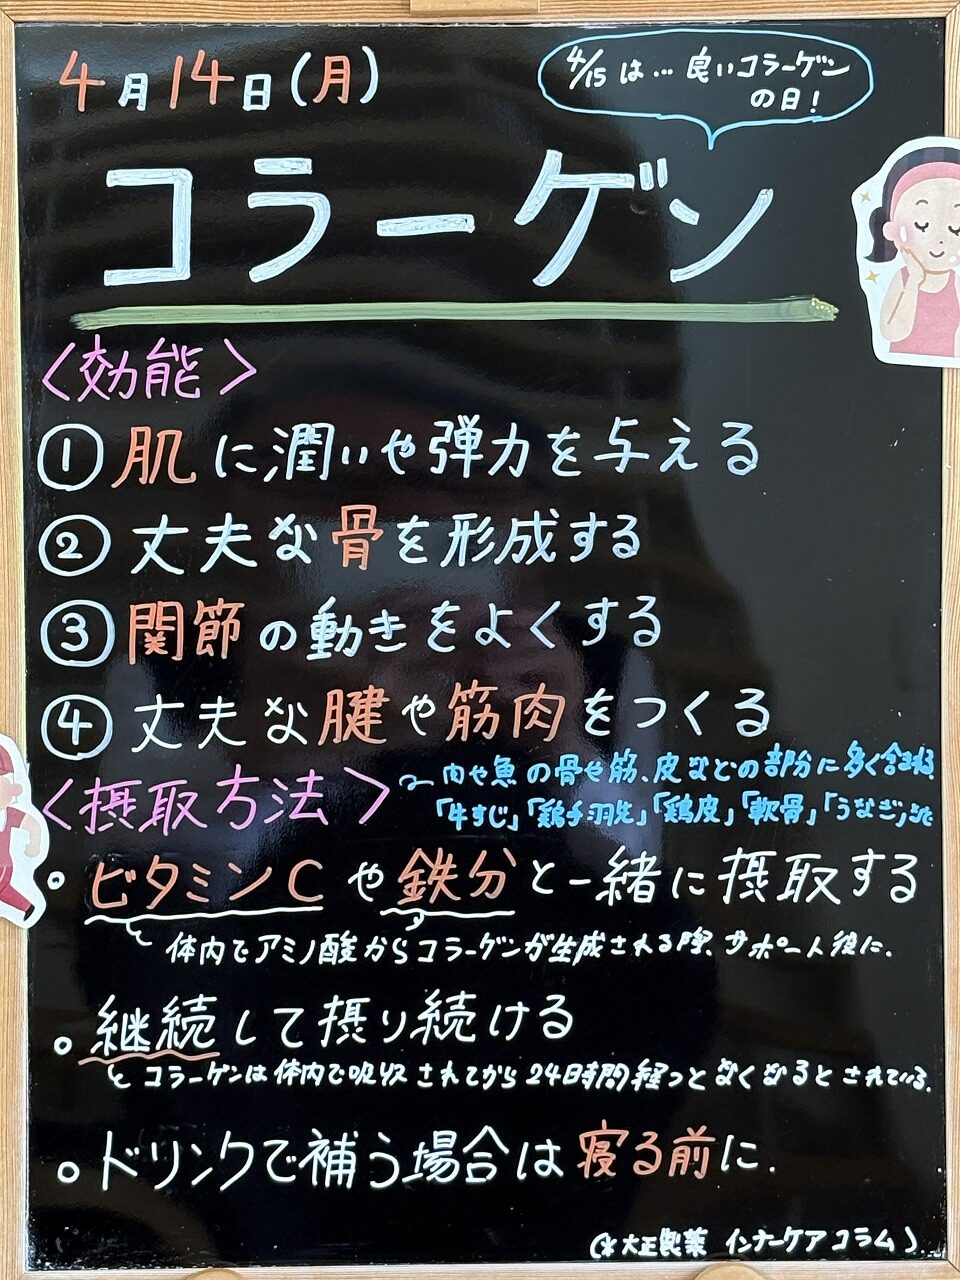 4月14日(月)
4/15は…良いコラーゲン
の日!
コラーゲン
〈効能〉
①肌に潤いや弾力を与える
②丈夫な骨を形成する
③関節の動きをよくする
④丈夫な腱や筋肉をつくる
〈摂取方法〉
肉や魚の骨や筋、皮などの部分に多く含まれる
「牛すじ」「鶏手羽先」「鶏皮」「軟骨」「うなぎ」
。ビタミンCや鉄分と一緒に摂取する
体内でアミノ酸からコラーゲンが生成される際、サポート役に.
。継続して摂り続ける
コラーゲンは体内で吸収されてから24時間経つとなくなるとされている.
。ドリンクで補う場合は寝る前に.
(※大正製薬 インナーケアコラム)